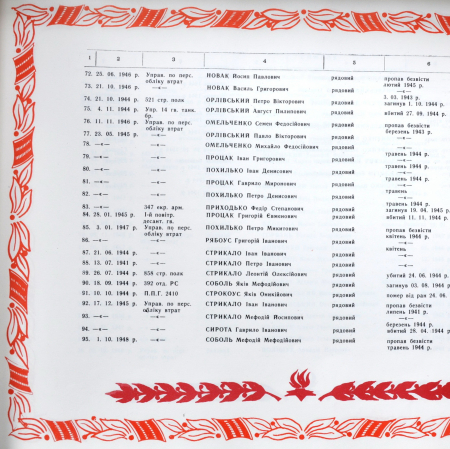 1 2 3 4 5 6
72. 25. 06. 1946 р. Управ. по перс. НОВАК Йосип Павлович рядовий пропав безвісти
обліку втрат лютий 1945 р.
73. 21. 10. 1946 р. —«— НОВАК Василь Григорович рядовий —«—
74. 21. 10. 1944 р. 521 стр. полк ОРЛІВСЬКИЙ Петро Вікторович рядовий загинув 1. 10. 1944 р.
75. 4. 11. 1944 р. Упр. 14 гв. танк. ОРЛІВСЬКИЙ Август Пилипович рядовий вбитий 27. 09. 1944 р.
бр.
76. 11. 11. 1946 р. Управ. по перс. ОМЕЛЬЧЕНКО Семен Федосійович рядовий пропав безвісти
обліку втрат березень 1943 р.
77. 23. 05. 1945 р. —«— ОРЛІВСЬКИЙ Павло Вікторович рядовий —«—
78. —«— —«— ОМЕЛЬЧЕНКО Михайло Федосійович рядовий
травень 1944 р.
79. —«— —«— ПРОЦАК Іван Григорович рядовий —«—
травень 1944 р.
80. —«— —«— ПОХИЛЬКО Іван Денисович рядовий —«—
травень 1944 р.
81. —«— —«— ПРОЦАК Гаврило Миронович рядовий —«—
травень
82. —«— —«— ПОХИЛЬКО Петро Денисович рядовий —«—
травень 1944 р.
83. —«— 547 окр. арм. ПРИХОДЬКО Федір Степанович рядовий загинув 19. 04. 1945 р.
84. 28. 01. 1945 р. 1-й повітр. ПРОЦАК Григорій Євменович рядовий вбитий 11. 11. 1944 р.
десант. гв.
85. 3. 01. 1947 р. Управ. по перс. ПОХИЛЬКО Петро Микитович рядовий пропав безвісти
обліку втрат квітень 1946 р.
86. —«— —«— РЯБОУС Григорій Іванович рядовий —«—
квітень
87. 21. 06. 1944 р. —«— СТРИКАЛО Іван Іванович рядовий
88. 13. 07. 1941 р. —«— СТРИКАЛО Петро Іванович рядовий —«—
89. 26. 07. 1944 р. 858 стр. полк СТРИКАЛО Леонтій Олексійович рядовий убитий 24. 06. 1944 р.
90. 18. 09. 1944 р. 392 отд. РС СОБОЛЬ Яків Мефодійович рядовий загинув 03. 08. 1944 р.
91. 10. 10. 1944 р. П.П.Г. 2410 СТРОКОУС Яків Оникійович рядовий помер від ран 26. 06.
92. 17. 12. 1945 р. Управ. по перс. СТРИКАЛО Іван Іванович рядовий пропав безвісти
обліку втрат липень 1941 р.
93. —«— —«— СТРИКАЛО Мефодій Йосипович рядовий —«—
березень 1944 р.
94. —«— —«— СИРОТА Гаврило Іванович рядовий вбитий 26. 04. 1944 р.
95. 1. 10. 1948 р. —«— СОБОЛЬ Мефодій Мефодійович рядовий пропав безвісти
травень 1944 р.